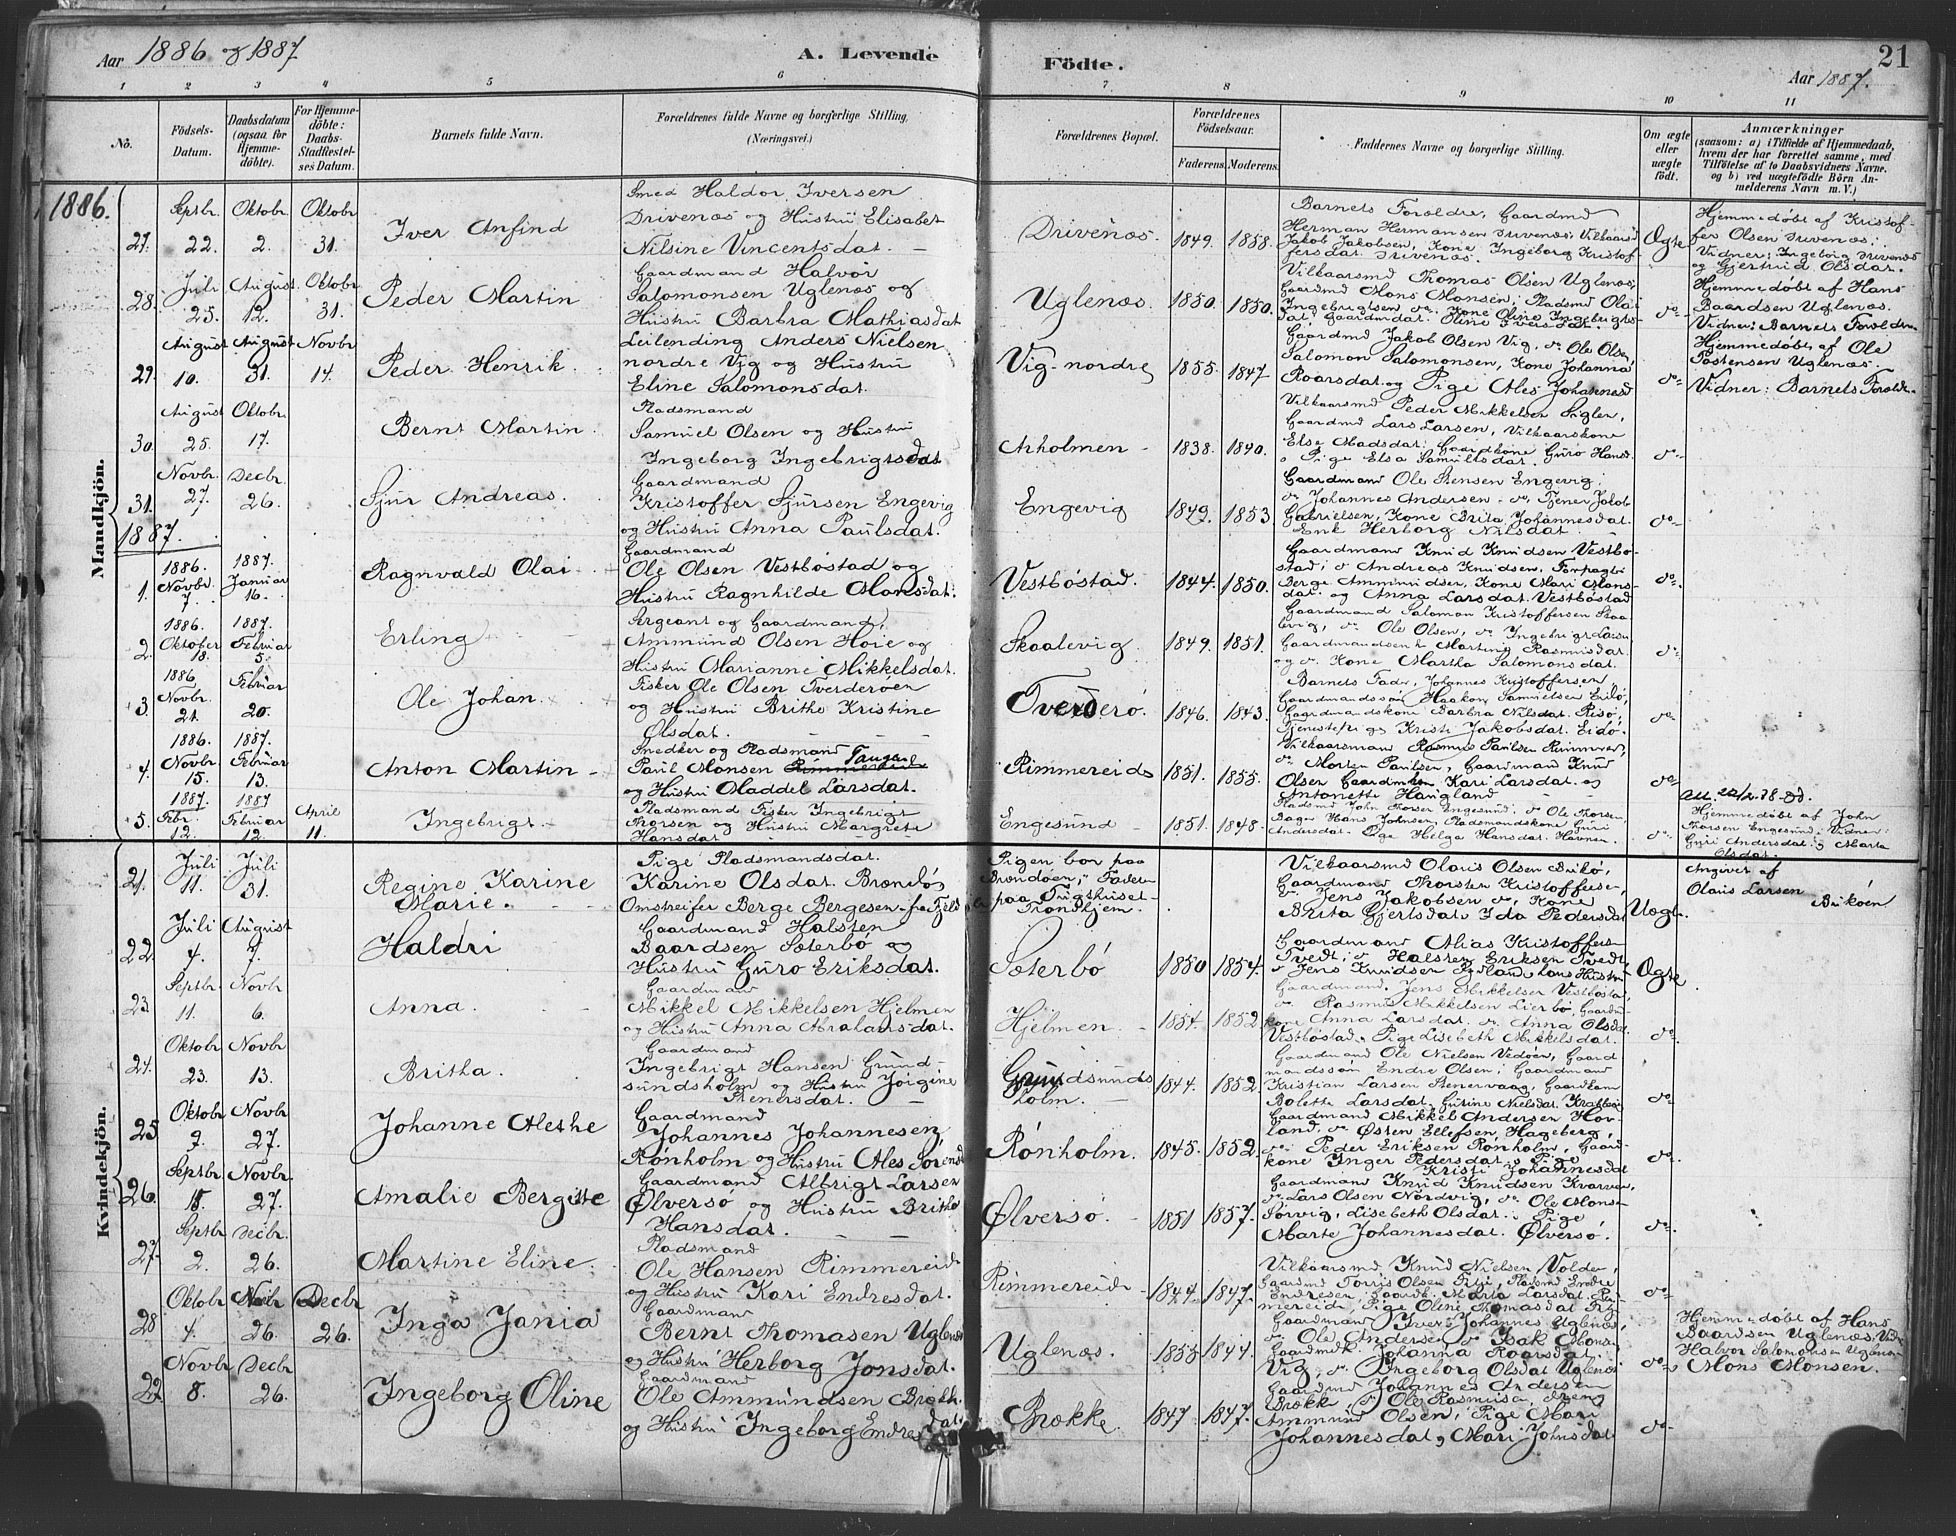 Aar 1886 og 1887
A. Levende Födte.
21
Aar 1887.
1 2 3 4 5 6 7 8 9 10 11
No.
Födsels-Datum.
Daabsdatum (ogsaa for Hjemmedöbte).
For Hjemmedöbte: Daabs-Stadfæstelses Datum.
Barnets fulde Navn.
Forældrenes fulde Navne og borgerlige Stilling, (Næringsvei.)
Forældrenes Bopæl.
Forældrenes Födselsaar.
Faderens. Moderens.
Faddernes Navne og borgerlige Stilling.
Om ægte eller uægte födt.
Anmærkninger
(saasom: a) i Tilfælde af Hjemmedaab, hvem der har forrettet samme, med Tilföielse af to Daabsvidners Navne, og b) ved uægtefödte Börn Anmelderens Navn m. V.)
Mandkjön.
1886.
27. Septbr. 22. Oktobr. 2. Oktobr 31.
Iver Anfind
Smed Haldor Iversen
Drivenæs og Hustru Elisabet
Nilsine Vincentsdat.
Drivenæs. 1849. 1858.
Barnets Forældre, Gaardmd
Herman Hermansen Drivenæs, Vilkaarsmd
Jakob Jakobsen, Kone Ingeborg Kristof-
fersdat. Drivenæs.
Ægte
Hjemmedöbt af Kristof-
fer Olsen Drivenæs.
Vidner: Ingeborg Drivenæs
og Gjertrud Olsdat.
28. Juli 25. August 12. Oktobr 31.
Peder Martin
Gaardmand Halvor
Salomonsen Uglenæs og
Hustru Barbra Mathiasdat
Uglenæs. 1850. 1850.
Vilkaarsmd Thomas Olsen Uglenæs,
Gaardmd Mons Monsen, Pladsmd Olai
Ingebrigtsen, Kone Oline Ingebrigts-
dat. Gaardmdat. Oline Iversdat.
do
Hjemmedöbt af Hans
Baardsen Uglenæs.
Vidner: Barnets Forældre
29. August 10. August 31. Novbr 14.
Peder Henrik
Leilending Anders Nielsen
nordre Vig og Hustru
Eline Salomonsdat.
Vig-nordre 1855. 1847.
Gaardmd Jakob Olsen Vig, do Ole Olsen,
Salomon Salomonsen, Kone Johanna
Roarsdat. og Pige Ales Johannesd
do
Hjemmedöbt af Ole
Postensen Uglenæs
Vidner: Barnets Foreldr.
30. August 25. Oktobr. 17.
Bernt Martin.
Pladsmand
Samuel Olsen og Hustru
Ingeborg Ingebrigtsdat
Axholmen 1838. 1840.
Vilkaarsmd Peder Mikkelsen Sigler,
Gaardmd Lars Larsen, Vilkaarskone
Else Madsdat. Gaardkone Guro Hansd.
Pige Elsa Samuelsdat.
do
31. Novbr. 27. Decbr. 26.
Sjur Andreas.
Gaardmand
Kristoffer Sjursen Engevig
og Hustru Anna Paulsdat.
Engevig 1849. 1853.
Gaardmand Ole Stensen Engevig;
do Johannes Andersen, do, Tjener Jakob
Gabrielsen, Kone Brita Johannesdat.
Enk Herborg Nilsdat.
do
1887.
1. 1886. Novbr. 7. 1887. Januar 16.
Ragnvald Olai
Gaardmand
Ole Olsen Vestböstad og
Hustru Ragnhilde Monsdat.
Vestböstad. 1844. 1850.
Gaardmand Knud Knudsen Vestbö-
stad; do Andreas Knudsen, Forpagter
Berge Ammundsen, Kone Mari Mons-
dat. og Anna Larsdat. Vestböstad
do
2. 1886. Oktober 18. 1887. Februar 5.
Erling
Sergeant og Gaardmand,
Ammund Olsen Hoie og
Hustru Marianne Mikkelsdat.
Skaalevig 1849. 1851.
Gaardmand Salomon Kristoffersen Skaa-
levig, do Ole Olsen, do Ingebrigt Larsen
Gaardmandsenk Martine Rasmusdat.
og do Kone Martha Salomonsdat.
do
3. 1886 Novbr. 21. Februar 20.
Ole Johan
Fisker Ole Olsen Tverderöen
og Hustru Brithe Kristine
Olsdat.
Tverderö. 1846. 1843.
Barnets Fader, Johannes Kristoffersen,
Gaardmandssön Haakon Samuelsen Eidö,
Gaardmandskone Barbra Nilsdat. Risö,
Tjenestepige Kristi Jakobsdat. Eidö.
do
4. 1886. Novbr. 15. 1887. Februar 13.
Anton Martin
Snedker og Pladsmand
Paul Monsen Rimmereid
og Hustru Oladdel Larsdat.
Rimmereide 1851. 1855.
Vilkaarsmand Rasmus Paulsen Rimmerei,
do Morten Paulsen, Gaardmand Knud
Olsen Gaardmkon Kari Larsdat. og
Antonette Haugland
do
5. 1887. Febr. 12. 1887 Februar 12. April 11.
Ingebrigt.
Pladsmand Fisker Ingebrigt
Thorsen og Hustru Margrete
Hansdat
Engesund 1851. 1848.
Pladsmd John Thorsen Engesund, do Ole Thorsen,
Bager Hans Johnsen, Pladsmandskone Guri
Andersdat. Pige Helga Hansdat. Havnen
do
Hjemmedöbt af John
Thorsen Engesund. Vidner:
Guri Andersdat. og Marta
Olsdat.
Kvindekjön.
21. Juli 11. Juli 31.
Regine Karine
Marie.
Pige Pladsmandsdat.
Karine Olsdat. Brændö,
Omstreifer Berge Bergesen fra Fjeld
Pigen bor paa
Brændöen, Faderen
paa Tugthuset
Trondhjem.
Vilkaarsmd Olaus Olsen Brikö,
Gaardmand Thorsten Kristoffersen,
do Jens Jakobsen do, Kone
Brita Gjertsdat. Ida Pedersdat
Uægt.
Angivet af
Olaus Larsen Brikøen
22. Juli 4. August 7.
Haldri
Gaardmand Halsten
Baardsen Sæterbö og
Hustru Guro Eriksdat.
Sæterbö 1850 1854.
Gaardmand Alias Kristoffersen
Tvedt, do Halsten Eriksen Tvedt,
do Jens Knudsen
Ægte
23. Septbr. 11. Novbr 6.
Anna.
Gaardmand
Mikkel Mikkelsen Hjelmen
og Hustru Anna Abrahamsdat.
Hjelmen 1854. 1852.
Gaardmand. Jens Mikkelsen Vestböstad,
do Rasmus Mikkelsen Lierbö, Gaardm-
kone Anna Larsdat. do Anna Olsdat.
Vestböstad. Pige Lisebeth Mikkelsdat.
do
24. Oktobr 23. Novbr 13.
Britha.
Gaardmand
Ingebrigt Hansen Grund-
sundsholm og Hustru Jörgine
Stenersdat.
Grundsunds
holm. 1844. 1852.
Gaardmand Ole Nielsen Vedöen, Gaard-
mandssön Endre Olsen, Gaardmand
Kristian Larsen Stenervaag, Gaardkone
Bolette Larsdat. Gurine Nielsdat.
do
25. Oktobr 9. Novbr 27.
Johanne Alethe
Gaardmand
Johannes Johannesen,
Rönholm og Hustru Ales Sörensd
Rönholm. 1845. 1852.
Gaardmand Mikkel Andersen Hor-
land, do Østen Ellefsen Hageberg,
do Peder Eriksen Rönholm, Gaard-
kone Inger Pedersdat. Pige
Kristi Johannesdat
do
26. Septbr 15. Novbr. 27.
Amalie Bergitte
Gaardmand Albrigt Larsen
Ølversö og Hustru Britha
Hansdat.
Ølversö. 1851 1857.
Gaardmand Knud Knudsen Kvarven,
do Lars Olsen Nordvig, do Ole Monsen
Sörvig, Lisebeth Olsdat. Pige
Marte Johannesdat. Ølversö.
do
27. Septbr 2. Decbr. 26.
Martine Eline.
Pladsmand
Ole Hansen Rimmereide
og Hustru Kari Endresdat.
Rimmereide 1844. 1847.
Vilkaarsmd Knud Nielsen Volden,
Gaardmd Torris Olsen Pladsmd Endre
Endresen, Gaardk. Marta Larsdat. Rim-
mereide, Pige Oline Thomasdat
do
28 Oktobr 4. Novbr 26. Decbr 26.
Inga Jania
Gaardmand
Bernt Thomasen Uglenæs
og Hustru Herborg Jonsdat.
Uglenæs. 1855 1844.
Gaardmand Iver Johannes Uglenæs,
do Ole Andersen do Isak Mons.
Gaardmdk. Johanna Roarsdat.
Vig, do. Ingeborg Olsdat Uglenæs
do
Hjemmedöbt af Hans
Baardsen Uglenæs. Vidn:
Halvor Salomonsen Uglenæs
Mons Monsen.
29. Novbr 8. Decbr 26.
Ingeborg Oline
Gaardmand
Ole Ammundsen Brække
og Hustru Ingeborg Endresdat.
Brække 1847. 1847.
Gaardmd Johannes Andersen
Brække, Ole Rasmusen, dreng
Ammund Olsen, Pige Mari
Johannesdat og Mari Johnsdat
do